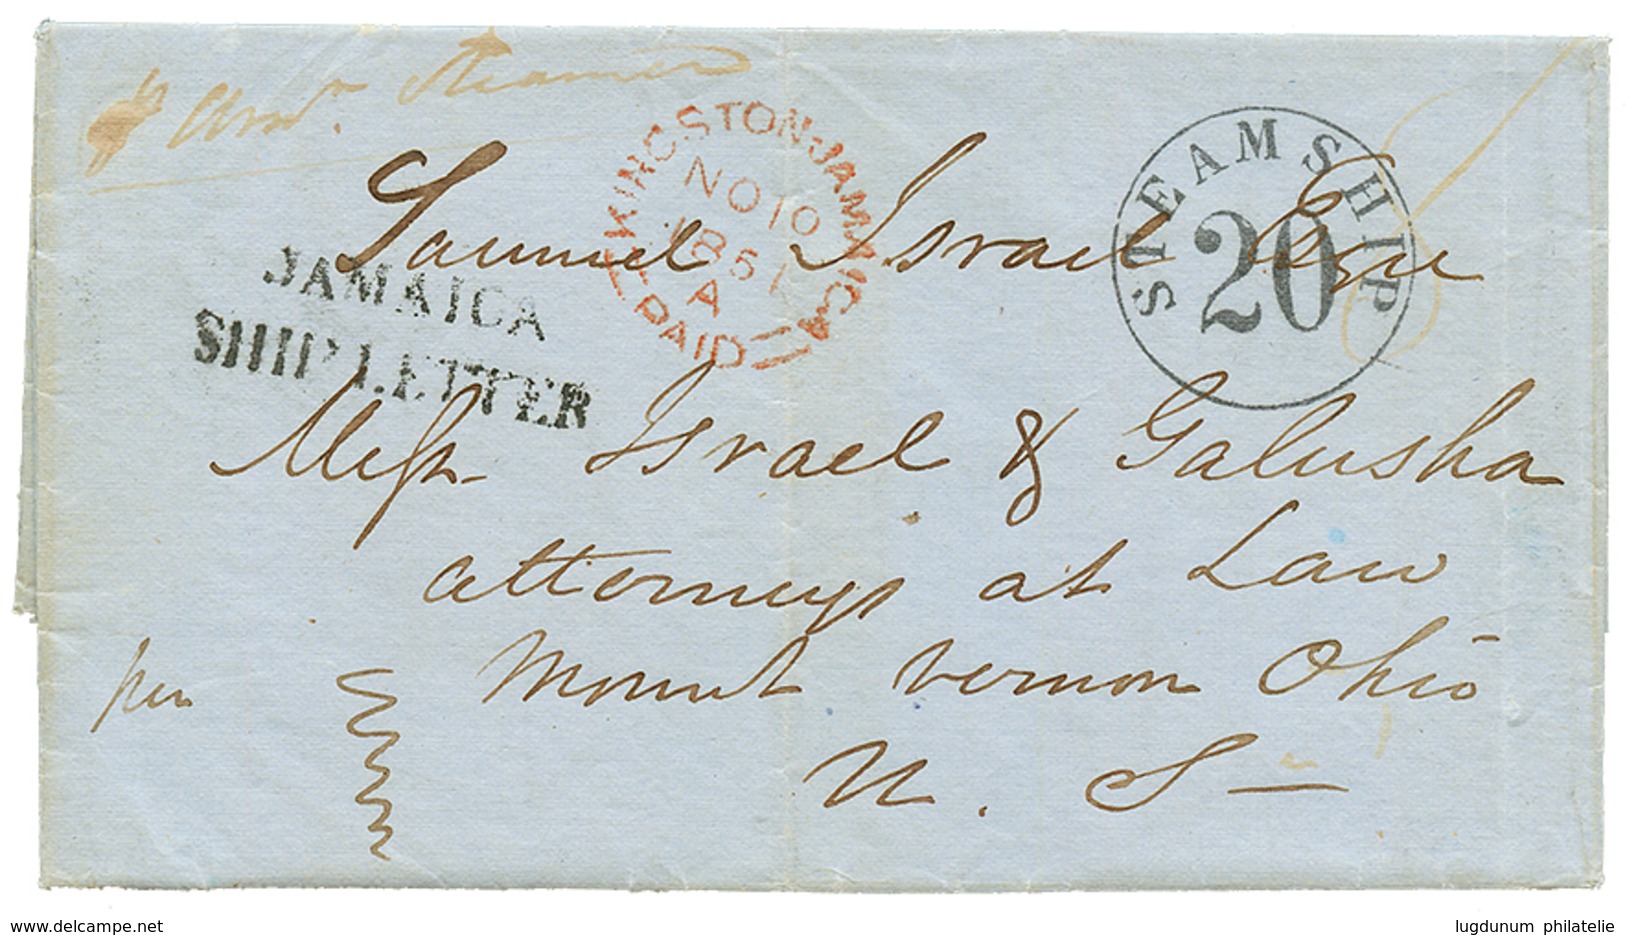 p Amn. Steamer
KINGSTON-JAMAICA
NO 10
1851
A
PAID
STEAM SHIP
20
JAMAICA
SHIP LETTER
Samuel Israel Esqu
Messrs Israel & Galusha
attorneys at Law
Mount Vernon Ohio
per
U. S
delcampe.net
lugdunum philatelie